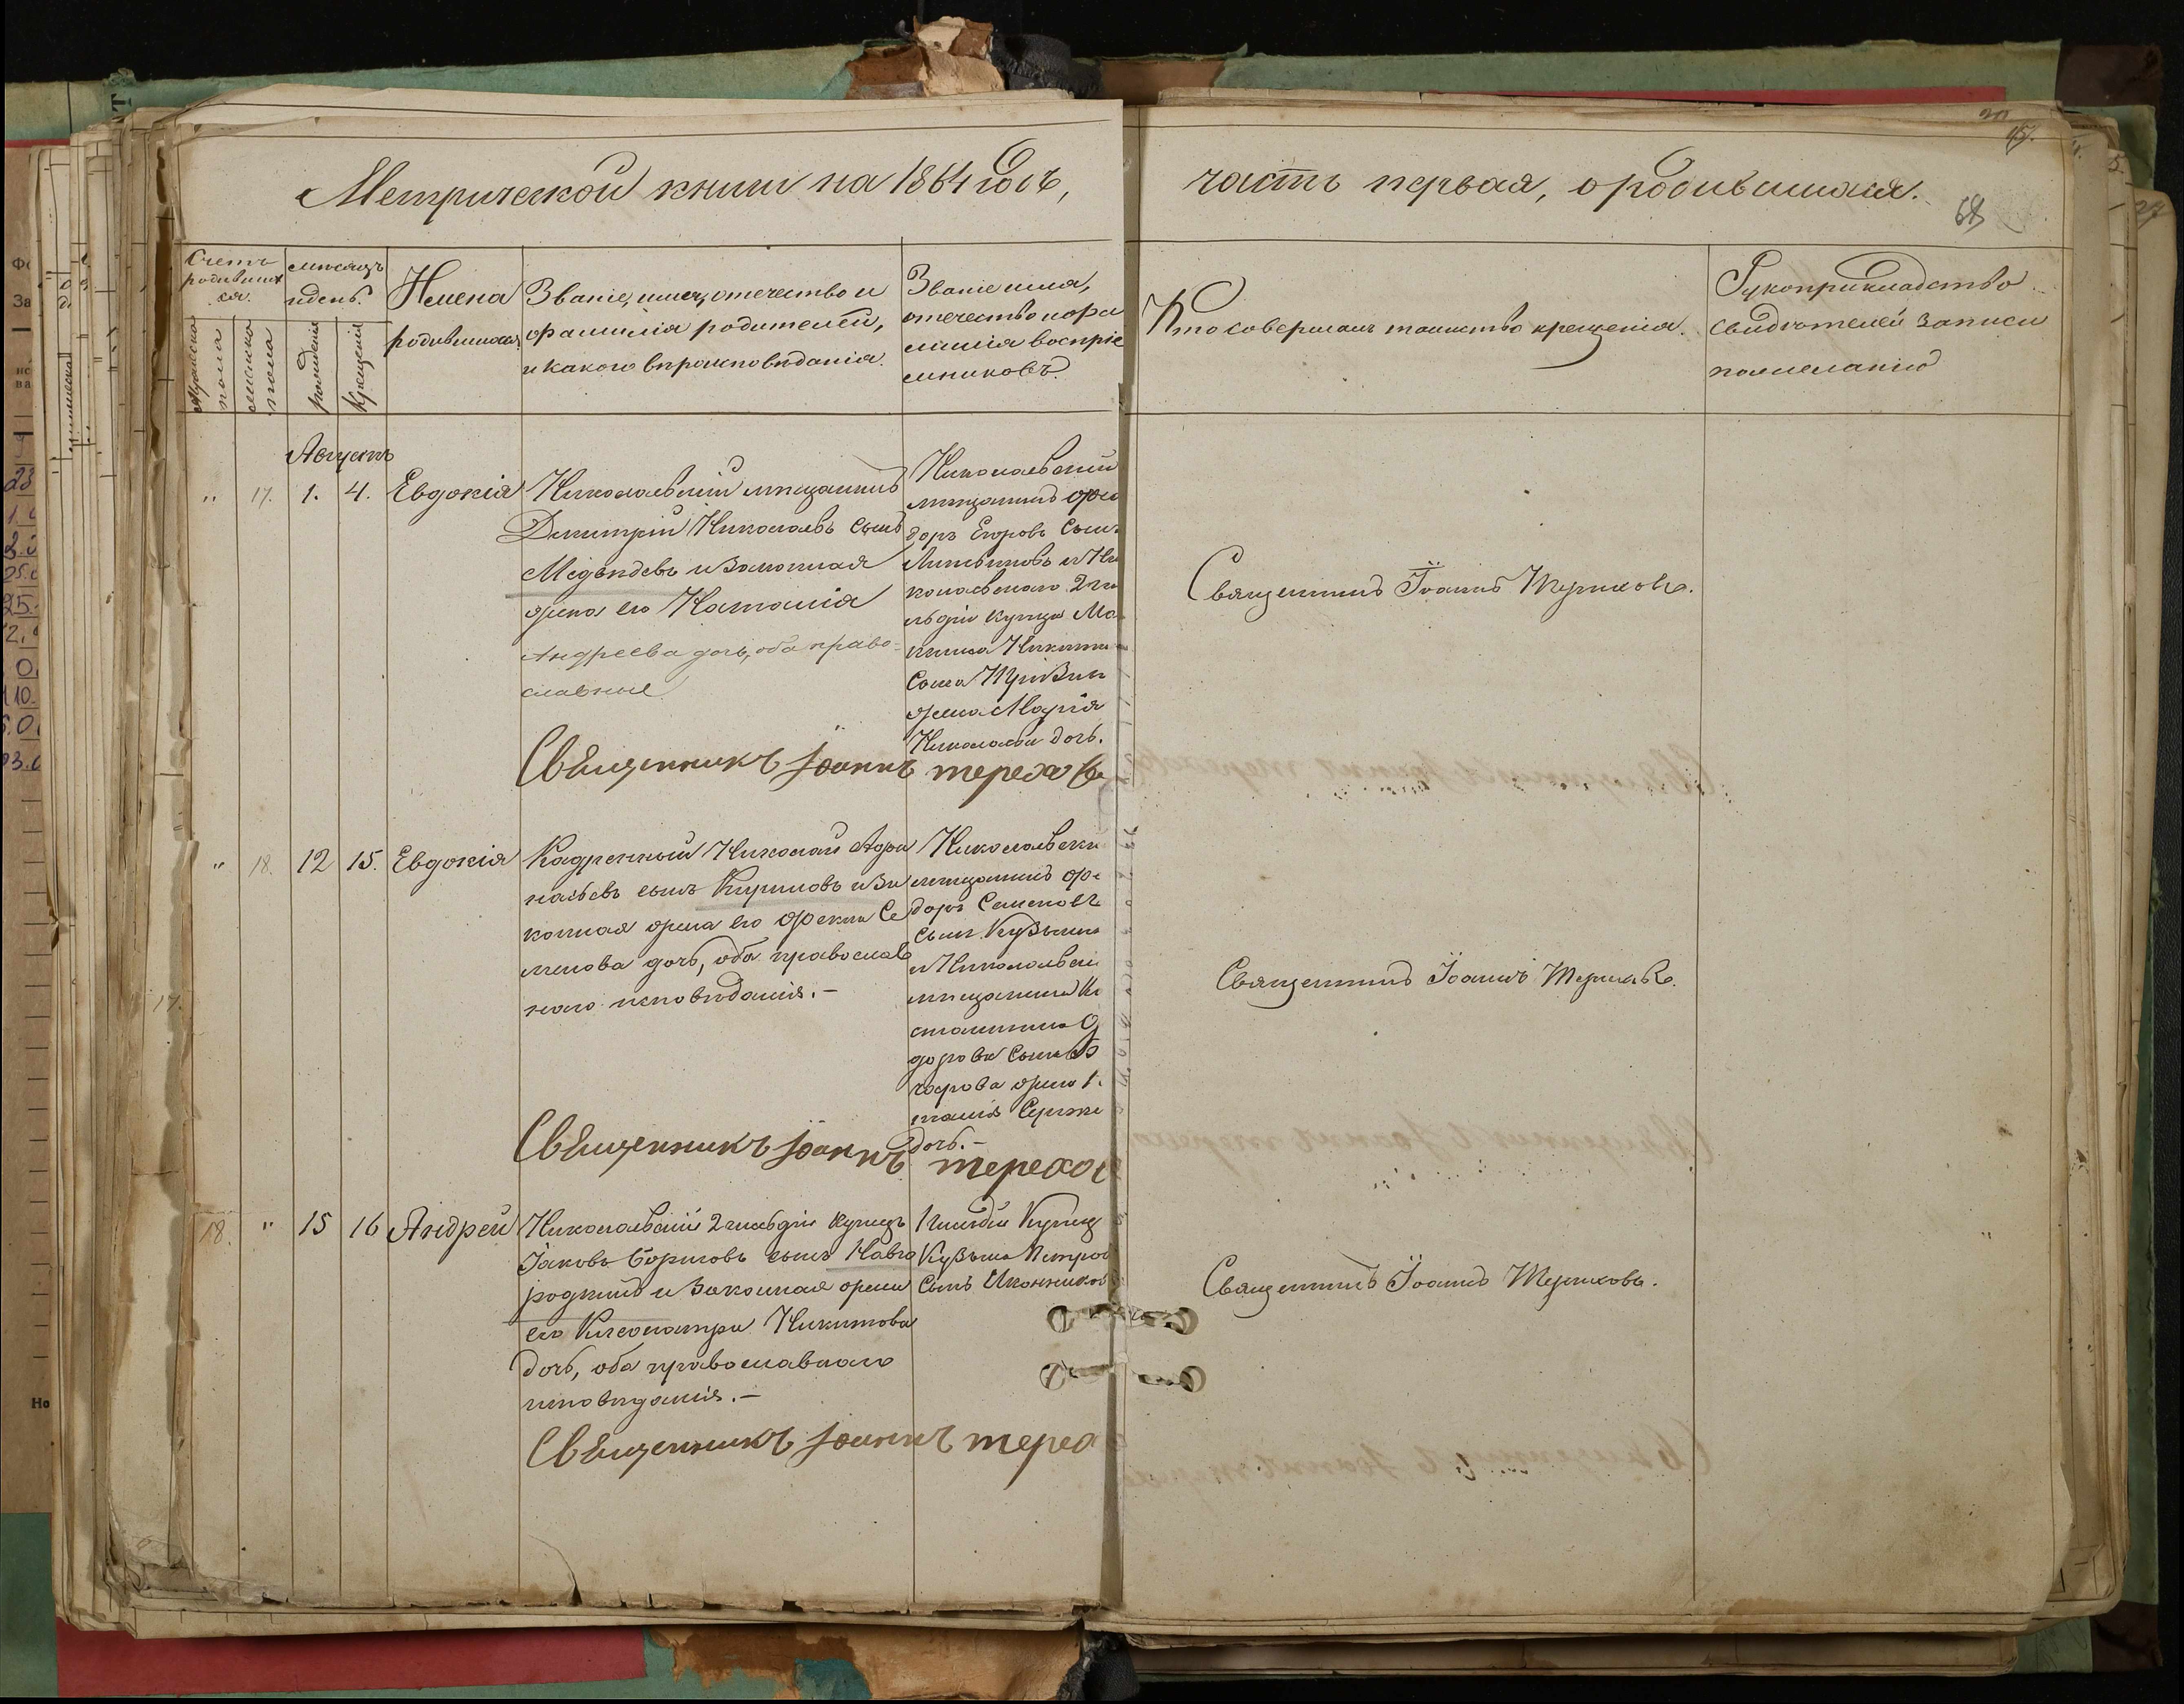 Метрической книги на 1864 Годъ,
часть первая, о родившихся.
68
Счетъ
родивших
ся.
Мужеска
пола
женска
пола
месяцъ
и день.
рожденія
Крещенія
Имена
родившихся.
Званіе, имя, отечество и
фамилія родителей,
и какого вероисповеданія.
Званіе имя,
отечество и фа
милія воспріе
мниковъ.
Кто совершалъ таинство крещенія.
Рукоприкладство
свидетелей записи
по желанію
Августъ
" 17. 1. 4. Евдокія
Николаевскій мещанинъ
Димитрій Николаевъ сынъ
Медведевъ и Законная
жена его Наталія
Андреева дочь, оба право-
славные
Николаевскій
мещанинъ Фео
доръ Егоровъ Сынъ
и Ни
колаевскаго 2й ги
льдіи купца Ма
Никити
Сына
жена Марія
Николаева дочь.
Священникъ Іоаннъ Терехов
Священникъ Іоаннъ Тереховъ.
" 18. 12 15. Евдокія
Николай Афа
насьевъ сынъ Курицовъ и За
конная жена его Фекла Се
менова дочь, оба православ
наго исповеданія. -
Николаевскі
мещанинъ Фе
доръ Семеновъ
сынъ Кузьмин
и Николаевскі
мещанина Ко
стантина Ф
дорова Сына
жена
Сергее
дочь. -
Священникъ Іоаннъ Терехов
Священникъ Іоаннъ Тереховъ.
18. " 15 16 Андрей
Николаевскій 2 гильдіи купецъ
Іаковъ Борисовъ сынъ Навго
родкинъ и Законная жена
его Клеопатра Никитова
дочь, оба православнаго
исповеданія. -
1 гильдіи Купец
Кузьма Петров
Сынъ Иконников
Священникъ Іоаннъ Терех
Священникъ Іоаннъ Тереховъ.